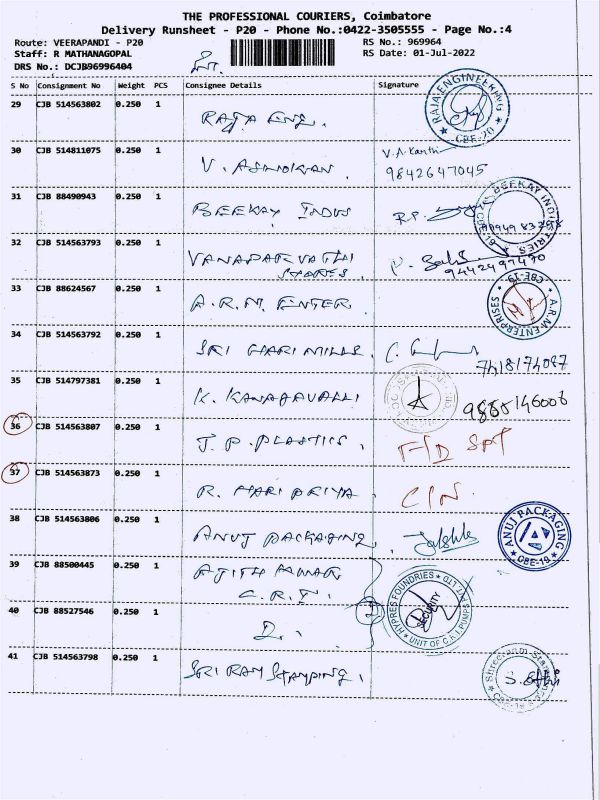 THE PROFESSIONAL COURIERS, Coimbatore
Delivery Runsheet - P20 - Phone No.:0422-3505555 - Page No.:4
Route: VEERAPANDI - P20
RS No.: 969964
Staff: R MATHANAGOPAL
RS Date: 01-Jul-2022
DRS No.: DCJB96996404
S No Consignment No Weight PCS Consignee Details Signature
29 CJB 514563802 0.250 1 RAJA ENG.
RAJA ENGINEERING CBE-20
30 CJB 514811075 0.250 1 V. ASHOKAN. V.A.Karthi
9842647045
31 CJB 88490943 0.250 1 BEEKAY INDUS
BEEKAY INDUSTRIES
32 CJB 514563793 0.250 1 VANAPARVATHI
STORES.
9442497470
33 CJB 88624567 0.250 1 A.R.M. ENTER
A.R.M ENTERPRISES CBE-19
34 CJB 514563792 0.250 1 SRI HARI MILLS.
35 CJB 514797381 0.250 1 K. KANAGAVALLI
36 CJB 514563807 0.250 1 J.P. PLASTICS.
37 CJB 514563873 0.250 1 R. HARI PRIYA.
38 CJB 514563806 0.250 1 ANUJ PACKAGING.
ANUJ PACKAGING CBE-19
39 CJB 88500445 0.250 1
C.R.I.
HYPRES FOUNDRIES PVT LTD
SECURITY
UNIT OF C.R.I. PUMPS
40 CJB 88527546 0.250 1
41 CJB 514563798 0.250 1 SRI RAM STAMPING.